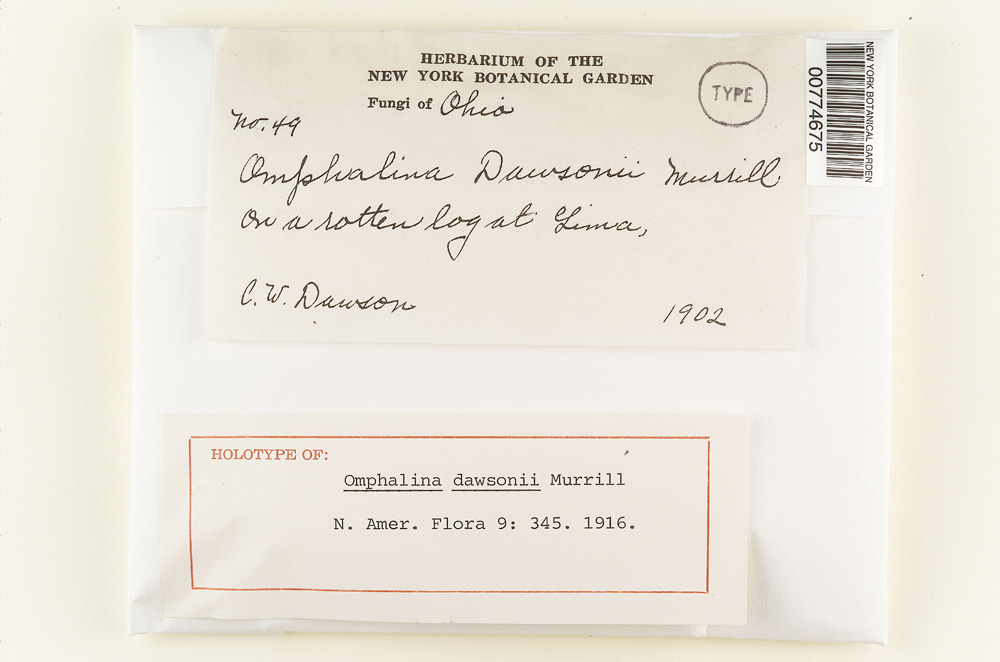 HERBARIUM OF THE
NEW YORK BOTANICAL GARDEN
Fungi of Ohio
TYPE
No. 49
Omphalina Dawsonii Murrill
on a rotten log at Lima,
C. W. Dawson
1902
NEW YORK BOTANICAL GARDEN
00774675
HOLOTYPE OF:
Omphalina dawsonii Murrill
N. Amer. Flora 9: 345. 1916.